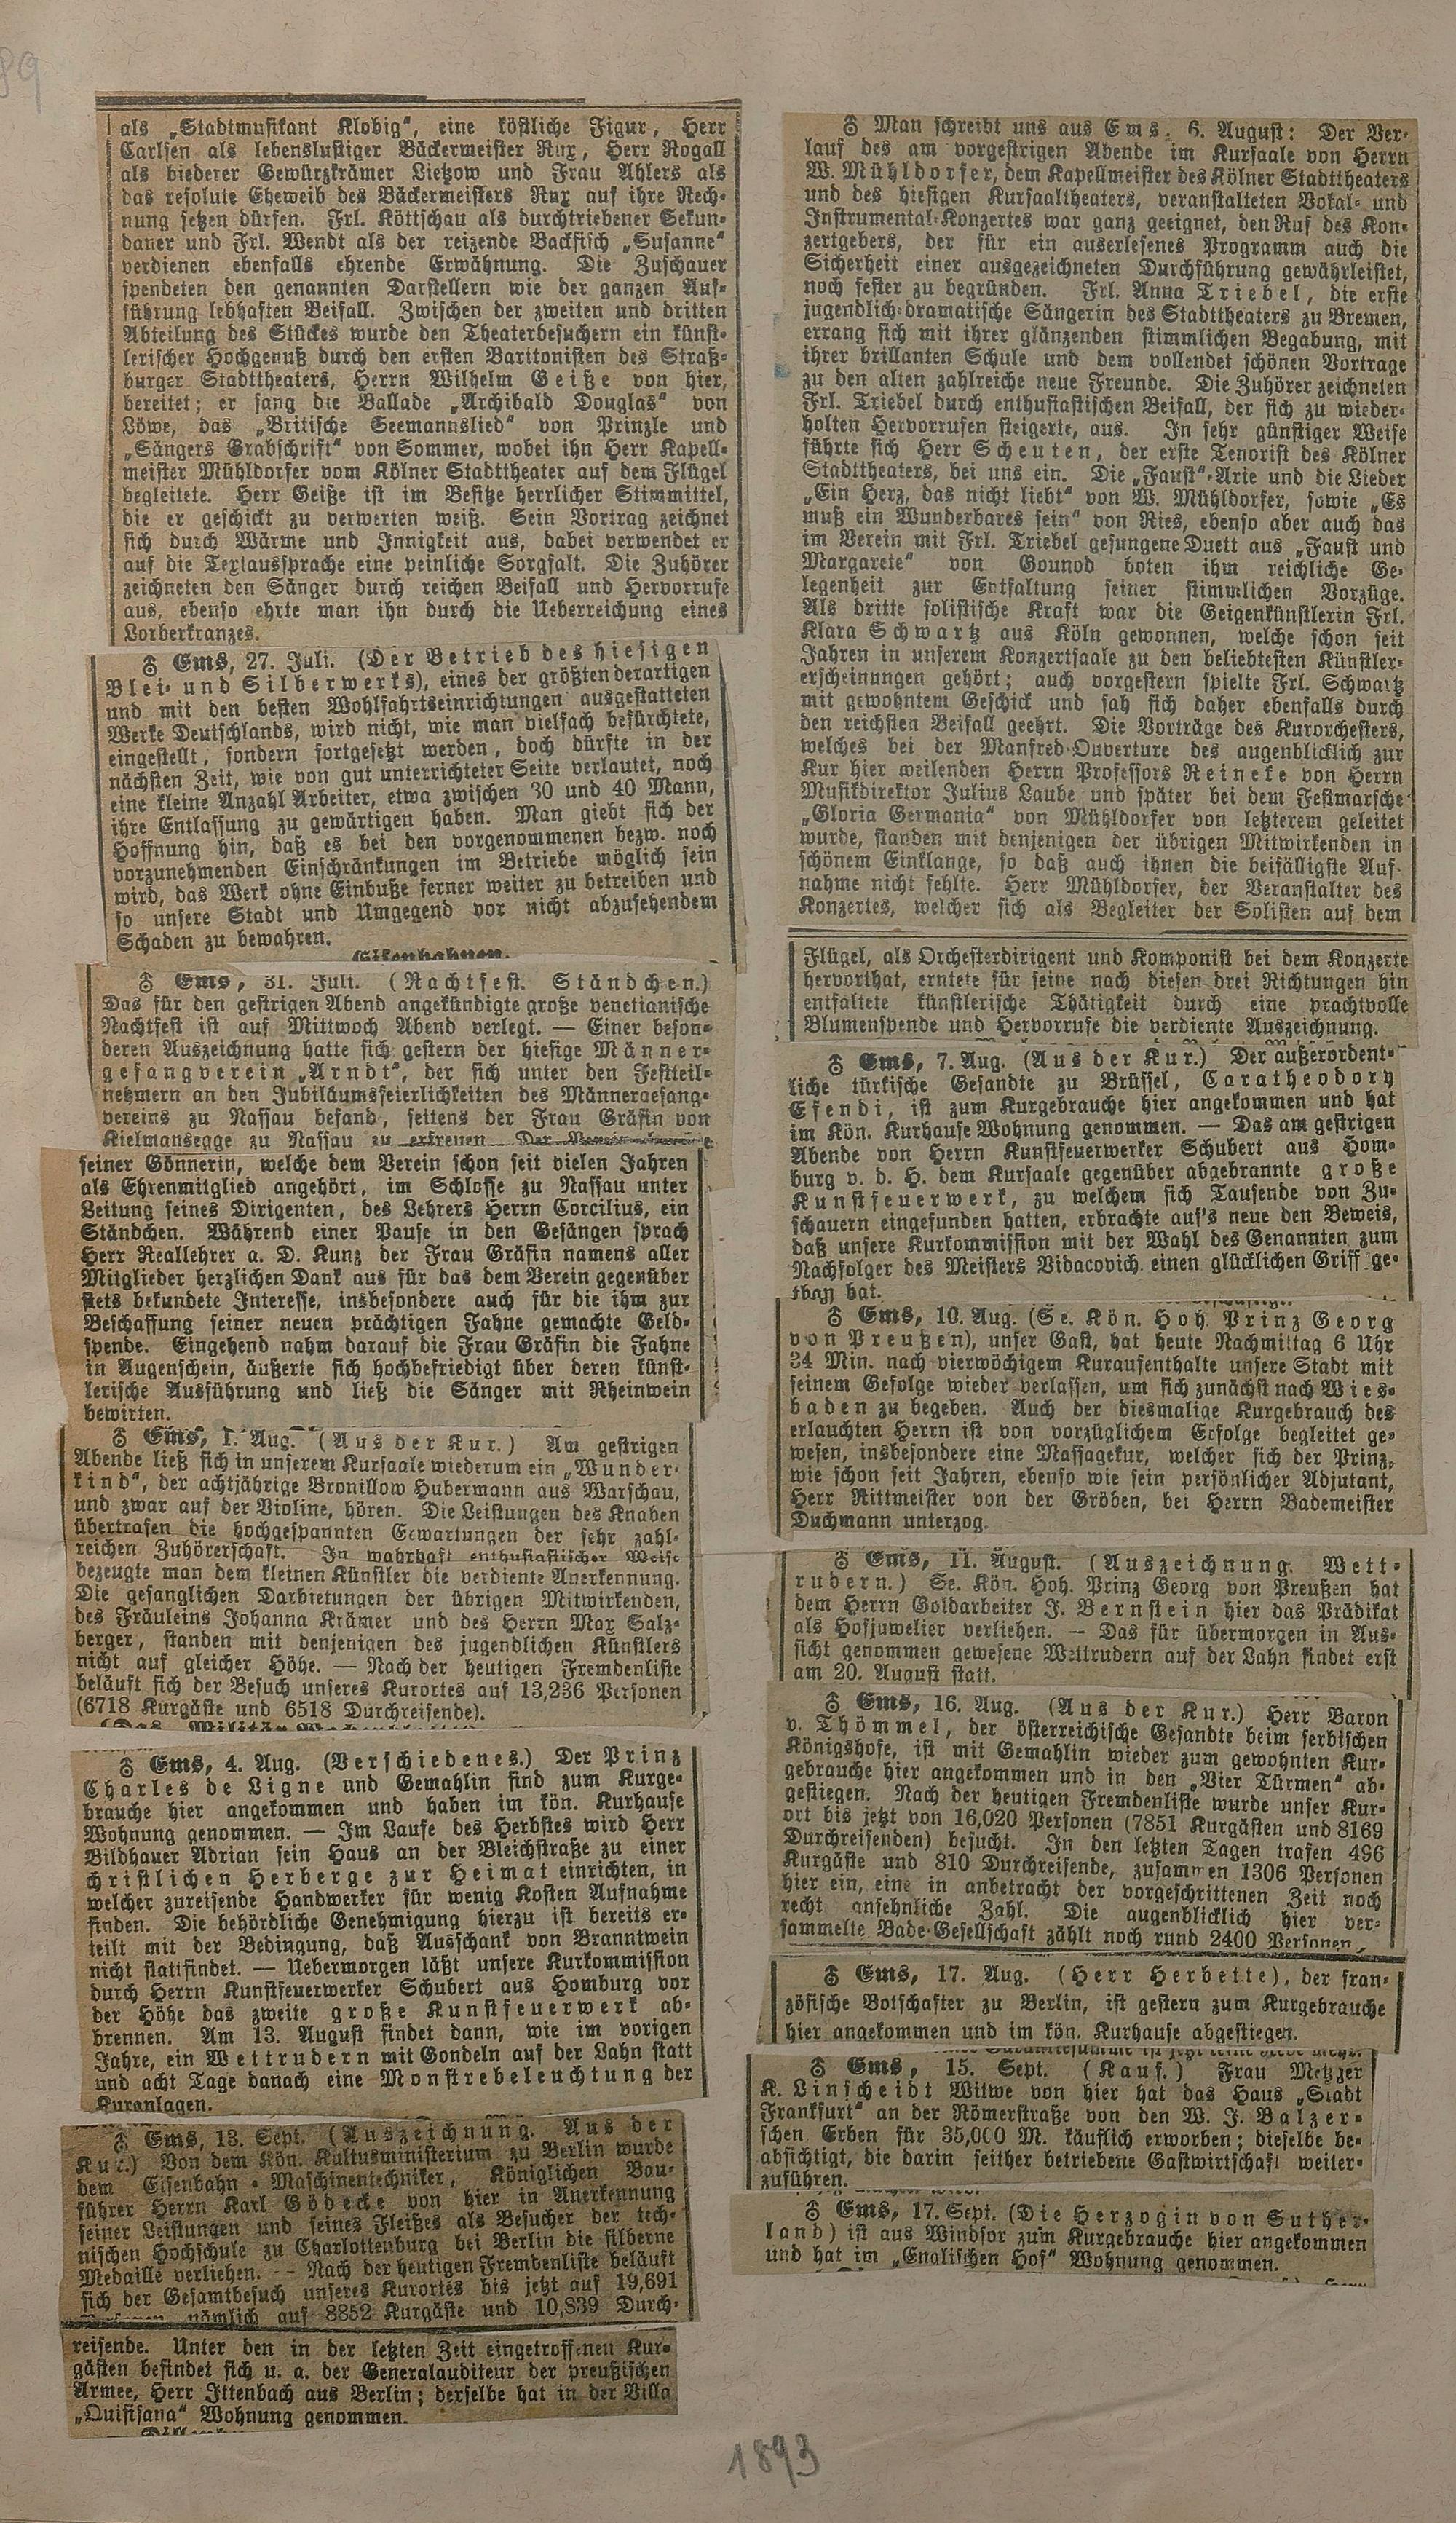 89
als „Stadtmusikant Klobig“, eine köstliche Figur, Herr
Carlsen als lebenslustiger Bäckermeister Rux, Herr Rogall
als biederer Gewürzkrämer Lietzow und Frau Ahlers als
das resolute Eheweib des Bäckermeisters Rux auf ihre Rech-
nung setzen dürfen. Frl. Köttschau als durchtriebener Sekun-
daner und Frl. Wendt als der reizende Backfisch „Susanne“
verdienen ebenfalls ehrende Erwähnung. Die Zuschauer
spendeten den genannten Darstellern wie der ganzen Auf-
führung lebhaften Beifall. Zwischen der zweiten und dritten
Abteilung des Stückes wurde den Theaterbesuchern ein künst-
lerischer Hochgenuß durch den ersten Baritonisten des Straß-
burger Stadttheaters, Herrn Wilhelm Geiße von hier,
bereitet; er sang die Ballade „Archibald Douglas“ von
Löwe, das „Britische Seemannslied“ von Prinzle und
„Sängers Grabschrift“ von Sommer, wobei ihn Herr Kapell-
meister Mühldorfer vom Kölner Stadttheater auf dem Flügel
begleitete. Herr Geiße ist im Besitze herrlicher Stimmittel,
die er geschickt zu verwerten weiß. Sein Vortrag zeichnet
sich durch Wärme und Innigkeit aus, dabei verwendet er
auf die Textaussprache eine peinliche Sorgfalt. Die Zuhörer
zeichneten den Sänger durch reichen Beifall und Hervorrufe
aus, ebenso ehrte man ihn durch die Ueberreichung eines
Lorberkranzes.
♁ Ems, 27. Juli. (Der Betrieb des hiesigen
Blei- und Silberwerks), eines der größten derartigen
und mit den besten Wohlfahrtseinrichtungen ausgestatteten
Werke Deutschlands, wird nicht, wie man vielfach befürchtete,
eingestellt, sondern fortgesetzt werden, doch dürfte in der
nächsten Zeit, wie von gut unterrichteter Seite verlautet, noch
eine kleine Anzahl Arbeiter, etwa zwischen 30 und 40 Mann,
ihre Entlassung zu gewärtigen haben. Man giebt sich der
Hoffnung hin, daß es bei den vorgenommenen bezw. noch
vorzunehmenden Einschränkungen im Betriebe möglich sein
wird, das Werk ohne Einbuße ferner weiter zu betreiben und
so unsere Stadt und Umgegend vor nicht abzusehendem
Schaden zu bewahren.
Eisenbahnen.
♁ Ems, 31. Juli. (Nachtfest. Ständchen.)
Das für den gestrigen Abend angekündigte große venetianische
Nachtfest ist auf Mittwoch Abend verlegt. — Einer beson-
deren Auszeichnung hatte sich gestern der hiesige Männer-
gesangverein „Arndt“, der sich unter den Festteil-
nehmern an den Jubiläumsfeierlichkeiten des Männergesang-
vereins zu Nassau befand, seitens der Frau Gräfin von
Kielmansegge zu Nassau zu erfreuen. Der
seiner Gönnerin, welche dem Verein schon seit vielen Jahren
als Ehrenmitglied angehört, im Schlosse zu Nassau unter
Leitung seines Dirigenten, des Lehrers Herrn Corcilius, ein
Ständchen. Während einer Pause in den Gesängen sprach
Herr Reallehrer a. D. Kunz der Frau Gräfin namens aller
Mitglieder herzlichen Dank aus für das dem Verein gegenüber
stets bekundete Interesse, insbesondere auch für die ihm zur
Beschaffung seiner neuen prächtigen Fahne gemachte Geld-
spende. Eingehend nahm darauf die Frau Gräfin die Fahne
in Augenschein, äußerte sich hochbefriedigt über deren künst-
lerische Ausführung und ließ die Sänger mit Rheinwein
bewirten.
♁ Ems, 1. Aug. (Aus der Kur.) Am gestrigen
Abende ließ sich in unserem Kursaale wiederum ein „Wunder-
kind“, der achtjährige Bronillow Hubermann aus Warschau,
und zwar auf der Violine, hören. Die Leistungen des Knaben
übertrafen die hochgespannten Erwartungen der sehr zahl-
reichen Zuhörerschaft. In wahrhaft enthusiastischer Weise
bezeugte man dem kleinen Künstler die verdiente Anerkennung.
Die gesanglichen Darbietungen der übrigen Mitwirkenden,
des Fräuleins Johanna Krämer und des Herrn Max Salz-
berger, standen mit denjenigen des jugendlichen Künstlers
nicht auf gleicher Höhe. — Nach der heutigen Fremdenliste
beläuft sich der Besuch unseres Kurortes auf 13,236 Personen
(6718 Kurgäste und 6518 Durchreisende).
♁ Ems, 4. Aug. (Verschiedenes.) Der Prinz
Charles de Ligne und Gemahlin sind zum Kurge-
brauche hier angekommen und haben im kön. Kurhause
Wohnung genommen. — Im Laufe des Herbstes wird Herr
Bildhauer Adrian sein Haus an der Bleichstraße zu einer
christlichen Herberge zur Heimat einrichten, in
welcher zureisende Handwerker für wenig Kosten Aufnahme
finden. Die behördliche Genehmigung hierzu ist bereits er-
teilt mit der Bedingung, daß Ausschank von Branntwein
nicht stattfindet. — Uebermorgen läßt unsere Kurkommission
durch Herrn Kunstfeuerwerker Schubert aus Homburg vor
der Höhe das zweite große Kunstfeuerwerk ab-
brennen. Am 13. August findet dann, wie im vorigen
Jahre, ein Wettrudern mit Gondeln auf der Lahn statt
und acht Tage danach eine Monstrebeleuchtung der
Kuranlagen.
♁ Ems, 13. Sept. (Auszeichnung. Aus der
Kur.) Von dem Kön. Kultusministerium zu Berlin wurde
dem Eisenbahn-Maschinentechniker, Königlichen Bau-
führer Herrn Karl Gödecke von hier in Anerkennung
seiner Leistungen und seines Fleißes als Besucher der tech-
nischen Hochschule zu Charlottenburg bei Berlin die silberne
Medaille verliehen. — Nach der heutigen Fremdenliste beläuft
sich der Gesamtbesuch unseres Kurortes bis jetzt auf 19,691
nämlich auf 8852 Kurgäste und 10,839 Durch-
reisende. Unter den in der letzten Zeit eingetroffenen Kur-
gästen befindet sich u. a. der Generalauditeur der preußischen
Armee, Herr Ittenbach aus Berlin; derselbe hat in der Villa
„Quisisana“ Wohnung genommen.
♁ Man schreibt uns aus Ems, 6. August: Der Ver-
lauf des am vorgestrigen Abende im Kursaale von Herrn
W. Mühldorfer, dem Kapellmeister des Kölner Stadttheaters
und des hiesigen Kursaaltheaters, veranstalteten Vokal- und
Instrumental-Konzertes war ganz geeignet, den Ruf des Kon-
zertgebers, der für ein auserlesenes Programm auch die
Sicherheit einer ausgezeichneten Durchführung gewährleistet,
noch fester zu begründen. Frl. Anna Triebel, die erste
jugendlich-dramatische Sängerin des Stadttheaters zu Bremen,
errang sich mit ihrer glänzenden stimmlichen Begabung, mit
ihrer brillanten Schule und dem vollendet schönen Vortrage
zu den alten zahlreiche neue Freunde. Die Zuhörer zeichneten
Frl. Triebel durch enthusiastischen Beifall, der sich zu wieder-
holten Hervorrufen steigerte, aus. In sehr günstiger Weise
führte sich Herr Scheuten, der erste Tenorist des Kölner
Stadttheaters, bei uns ein. Die „Faust“-Arie und die Lieder
„Ein Herz, das nicht liebt“ von W. Mühldorfer, sowie „Es
muß ein Wunderbares sein“ von Ries, ebenso aber auch das
im Verein mit Frl. Triebel gesungene Duett aus „Faust und
Margarete“ von Gounod boten ihm reichliche Ge-
legenheit zur Entfaltung seiner stimmlichen Vorzüge.
Als dritte solistische Kraft war die Geigenkünstlerin Frl.
Klara Schwartz aus Köln gewonnen, welche schon seit
Jahren in unserem Konzertsaale zu den beliebtesten Künstler-
erscheinungen gehört; auch vorgestern spielte Frl. Schwartz
mit gewohntem Geschick und sah sich daher ebenfalls durch
den reichsten Beifall geehrt. Die Vorträge des Kurorchesters,
welches bei der Manfred-Ouverture des augenblicklich zur
Kur hier weilenden Herrn Professors Reineke von Herrn
Musikdirektor Julius Laube und später bei dem Festmarsche
„Gloria Germania“ von Mühldorfer von letzterem geleitet
wurde, standen mit denjenigen der übrigen Mitwirkenden in
schönem Einklange, so daß auch ihnen die beifälligste Auf-
nahme nicht fehlte. Herr Mühldorfer, der Veranstalter des
Konzertes, welcher sich als Begleiter der Solisten auf dem
Flügel, als Orchesterdirigent und Komponist bei dem Konzerte
hervorthat, erntete für seine nach diesen drei Richtungen hin
entfaltete künstlerische Thätigkeit durch eine prachtvolle
Blumenspende und Hervorrufe die verdiente Auszeichnung.
♁ Ems, 7. Aug. (Aus der Kur.) Der außerordent-
liche türkische Gesandte zu Brüssel, Caratheodory
Efendi, ist zum Kurgebrauche hier angekommen und hat
im Kön. Kurhause Wohnung genommen. — Das am gestrigen
Abende von Herrn Kunstfeuerwerker Schubert aus Hom-
burg v. d. H. dem Kursaale gegenüber abgebrannte große
Kunstfeuerwerk, zu welchem sich Tausende von Zu-
schauern eingefunden hatten, erbrachte auf's neue den Beweis,
daß unsere Kurkommission mit der Wahl des Genannten zum
Nachfolger des Meisters Vidacovich einen glücklichen Griff ge-
than hat.
♁ Ems, 10. Aug. (Se. Kön. Hoh. Prinz Georg
von Preußen), unser Gast, hat heute Nachmittag 6 Uhr
34 Min. nach vierwöchigem Kuraufenthalte unsere Stadt mit
seinem Gefolge wieder verlassen, um sich zunächst nach Wies-
baden zu begeben. Auch der diesmalige Kurgebrauch des
erlauchten Herrn ist von vorzüglichem Erfolge begleitet ge-
wesen, insbesondere eine Massagekur, welcher sich der Prinz,
wie schon seit Jahren, ebenso wie sein persönlicher Adjutant,
Herr Rittmeister von der Gröben, bei Herrn Bademeister
Duchmann unterzog.
♁ Ems, 11. August. (Auszeichnung. Wett-
rudern.) Se. Kön. Hoh. Prinz Georg von Preußen hat
dem Herrn Goldarbeiter J. Bernstein hier das Prädikat
als Hofjuwelier verliehen. — Das für übermorgen in Aus-
sicht genommen gewesene Wettrudern auf der Lahn findet erst
am 20. August statt.
♁ Ems, 16. Aug. (Aus der Kur.) Herr Baron
v. Thömmel, der österreichische Gesandte beim serbischen
Königshofe, ist mit Gemahlin wieder zum gewohnten Kur-
gebrauche hier angekommen und in den „Vier Türmen“ ab-
gestiegen. Nach der heutigen Fremdenliste wurde unser Kur-
ort bis jetzt von 16,020 Personen (7851 Kurgästen und 8169
Durchreisenden) besucht. In den letzten Tagen trafen 496
Kurgäste und 810 Durchreisende, zusammen 1306 Personen
hier ein, eine in anbetracht der vorgeschrittenen Zeit noch
recht ansehnliche Zahl. Die augenblicklich hier ver-
sammelte Bade-Gesellschaft zählt noch rund 2400 Personen.
♁ Ems, 17. Aug. (Herr Herbette), der fran-
zösische Botschafter zu Berlin, ist gestern zum Kurgebrauche
hier angekommen und im kön. Kurhause abgestiegen.
♁ Ems, 15. Sept. (Kauf.) Frau Metzger
K. Linscheidt Witwe von hier hat das Haus „Stadt
Frankfurt“ an der Römerstraße von den W. J. Balzer-
schen Erben für 35,000 M. käuflich erworben; dieselbe be-
absichtigt, die darin seither betriebene Gastwirtschaft weiter-
zuführen.
♁ Ems, 17. Sept. (Die Herzogin von Suther-
land) ist aus Windsor zum Kurgebrauche hier angekommen
und hat im „Englischen Hof“ Wohnung genommen.
1893